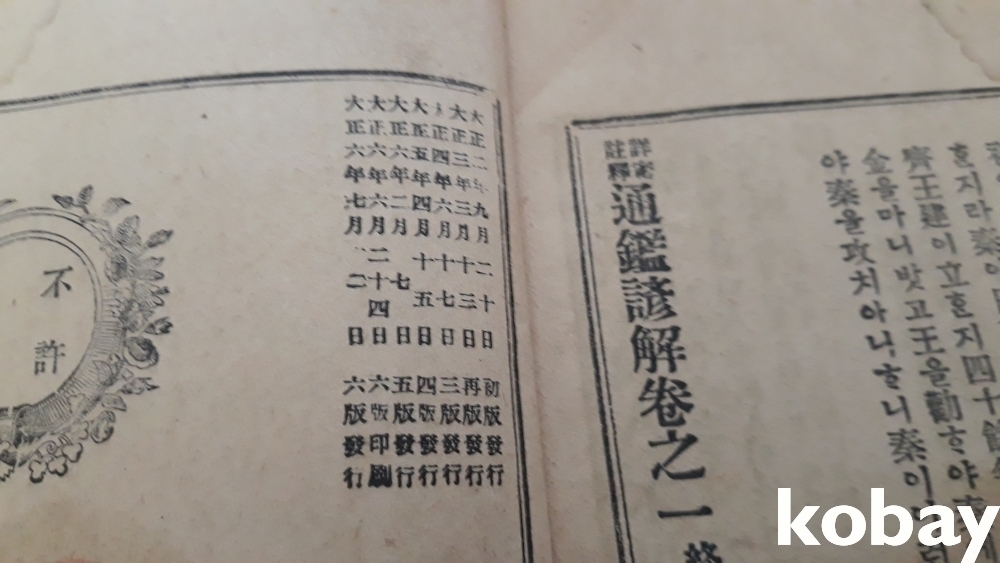 齊王建이立ᄒᆞᆫ지四十餘
金을마니밧고王을勸ᄒᆞ야秦에
야秦을攻치아니ᄒᆞ니秦이
詳密
註釋
通鑑諺解卷之一 終
大正二年九月二十日 初版發行
大正三年三月十三日 再版發行
大正四年六月十七日 三版發行
大正五年四月十五日 四版發行
大正六年二月七日 五版發行
大正六年六月二十四日 六版印刷
大正六年七月二日 六版發行
不許
kobay